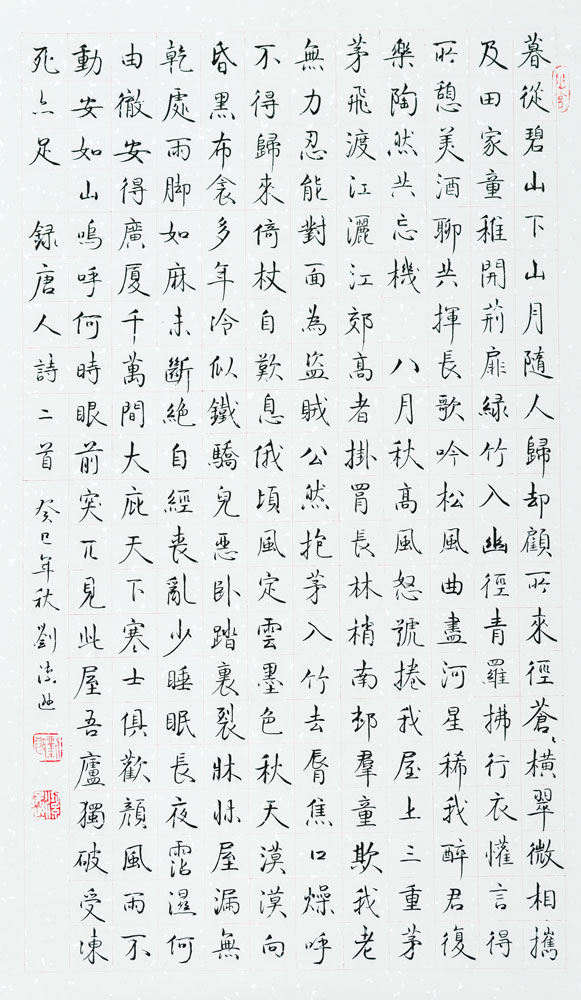 暮從碧山下山月隨人歸却顧所來徑蒼〻橫翠微相攜
及田家童稚開荊扉綠竹入幽徑青羅拂行衣懽言得
所憩美酒聊共揮長歌吟松風曲盡河星稀我醉君復
樂陶然共忘機 八月秋高風怒號捲我屋上三重茅
茅飛渡江灑江郊高者掛罥長林梢南邨羣童欺我老
無力忍能對面為盜賊公然抱茅入竹去脣焦口燥呼
不得歸來倚杖自歎息俄頃風定雲墨色秋天漠漠向
昏黑布衾多年冷似鐵驕兒惡臥踏裏裂牀牀屋漏無
乾處雨脚如麻未斷絕自經喪亂少睡眠長夜霑濕何
由徹安得廣厦千萬間大庇天下寒士俱歡顏風雨不
動安如山嗚呼何時眼前突兀見此屋吾廬獨破受凍
死亦足 錄唐人詩二首 癸巳年秋 劉